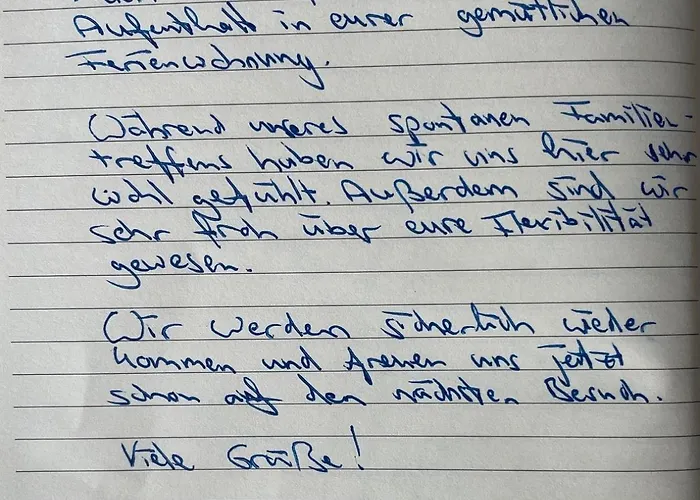 Aufenthalt in eurer gemütlichen
Ferienwohnung.
Während unseres spontanen Familien-
treffens haben wir uns hier sehr
wohl gefühlt. Außerdem sind wir
sehr froh über eure Flexibilität
gewesen.
Wir werden sicherlich wieder
kommen und freuen uns jetzt
schon auf den nächsten Besuch.
Viele Grüße!